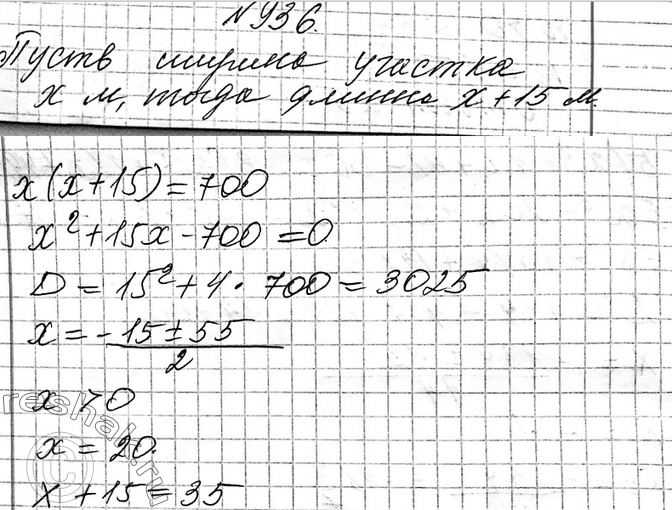 №936.
Пусть ширина участка
x м, тогда длинна x+15 м.
x(x+15)=700
x²+15x-700=0
D=15²+4·700=3025
x=-15±55
2
x>0
x=20.
x+15=35
reshak.ru